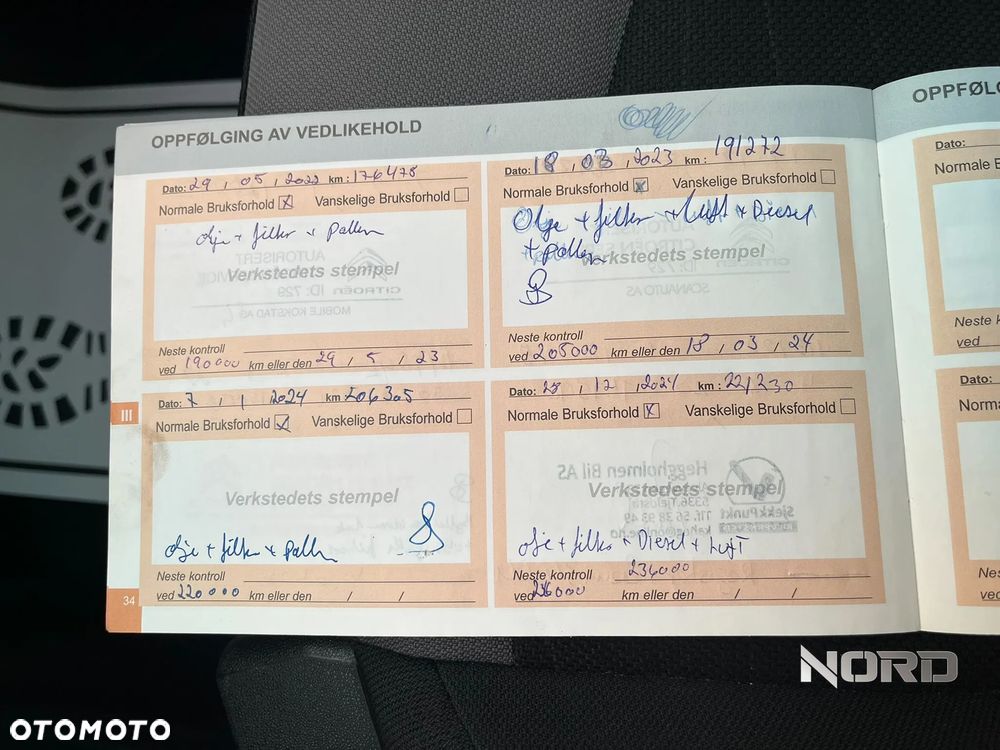 OPPFØLGING AV VEDLIKEHOLD
Dato: 29 , 05 , 2022 km : 176478
Normale Bruksforhold ☒ Vanskelige Bruksforhold ☐
olje + filter + pollen
Verkstedets stempel
AUTORISERT
CITROËN
ID: 729
MOBILE KOKSTAD AS
Neste kontroll
ved 190000 km eller den 29 , 5 , 23
Dato: 18 , 03 , 2023 km : 191272
Normale Bruksforhold ☒ Vanskelige Bruksforhold ☐
Olje + filter + luft + Diesel
+ pollen
Verkstedets stempel
AUTORISERT
CITROËN
ID:729
SCANAUTO AS
Neste kontroll
ved 205000 km eller den 18 , 03 , 24
III
Dato: 7 , 1 , 2024 km 206305
Normale Bruksforhold ☑ Vanskelige Bruksforhold ☐
Verkstedets stempel
olje + filter + pollen
Neste kontroll
ved 220000 km eller den / /
34
Dato: , 12 , 2024 km : 221230
Normale Bruksforhold ☒ Vanskelige Bruksforhold ☐
Heggholmen Bil AS
Verkstedets stempel
Tlf. 56 38 93 49
SjekkPunkt
olje + filter + Diesel + Luft
236000
Neste kontroll
ved 236000 km eller den / /
OPPFØLG
Dato:
Normale B
Neste k
ved
Dato:
Norma
Nest
ved
NORD
OTOMOTO